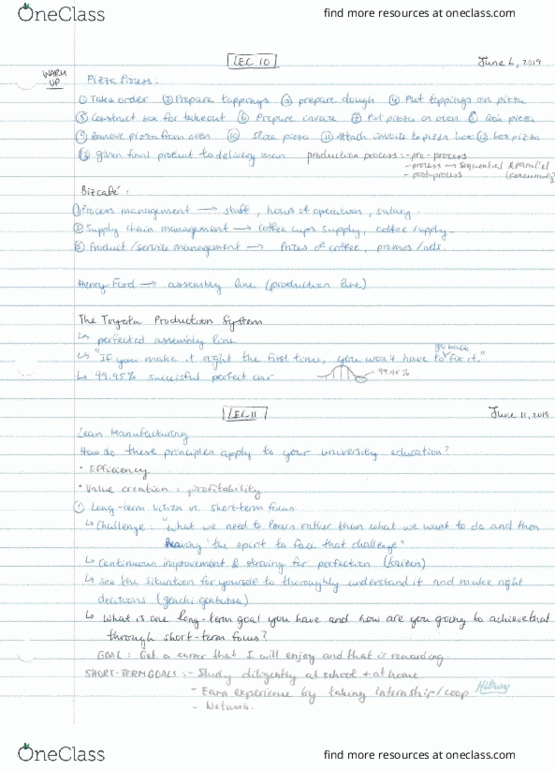 OneClass
find more resources at oneclass.com
LEC 10
June 6, 2019
WARM UP
Pizza Process:
① Take order ② Prepare toppings ③ prepare dough ④ Put toppings on pizza
⑤ Construct box for takeout ⑥ Prepare invoice ⑦ Put pizza in oven ⑧ Cook pizza
⑨ Remove pizza from oven ⑩ Slice pizza ⑪ Attach invoice to pizza box ⑫ box pizza
⑬ given final product to delivery man production process: - pre-process
- process → sequential & parallel
- post-process
Bizcafé:
① Process management → staff, hours of operation, salary
② Supply chain management → coffee cups supply, coffee supply.
③ Product/service management → Prices of coffee, promos/ads.
Henry Ford → assembly line (production line)
The Toyota Production System
↳ perfected assembly line
↳ "If you make it right the first time, you won't have to go back fix it."
↳ 99.95% successful perfect car
99.95%
LEC 11
June 11, 2019
Lean Manufacturing
How do these principles apply to your university education?
• Efficiency
• Value creation: profitability
① Long-term vision vs. short-term focus
↳ Challenge: "What we need to learn rather than what we want to do and then
having the spirit to face that challenge"
↳ Continuous improvement & striving for perfection (kaizen)
↳ see the situation for yourself to thoroughly understand it and make right
decisions (genchi genbutsu)
↳ What is one long-term goal you have and how are you going to achieve that
through short-term focus?
GOAL: Get a career that I will enjoy and that is rewarding.
SHORT-TERM GOALS: - Study diligently at school + at home
- Earn experience by taking internship/coop
- Network.
OneClass
find more resources at oneclass.com